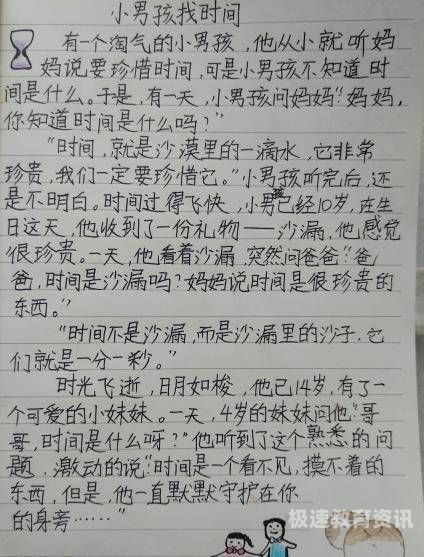 小男孩找时间
有一个淘气的小男孩，他从小就听妈
妈说要珍惜时间，可是小男孩不知道时
间是什么。于是，有一天，小男孩问妈妈：“妈妈，
你知道时间是什么吗？”
“时间，就是沙漠里的一滴水，它非常
珍贵，我们一定要珍惜它。”小男孩听完后，还
是不明白。时间过得飞快，小男孩已经10岁，在生
日这天，他收到了一份礼物——沙漏，他感觉
很珍贵。一天，他看着沙漏，突然问爸爸：“爸
爸，时间是沙漏吗？妈妈说时间是很珍贵的
东西。”
“时间不是沙漏，而是沙漏里的沙子，它
们就是一分一秒。”
时光飞逝，日月如梭，他已14岁，有了一
个可爱的小妹妹。一天，4岁的妹妹问他：“哥
哥，时间是什么呀？”他听到了这个熟悉的问
题，激动的说：“时间是一个看不见，摸不着的
东西，但是，他一直默默守护在你
的身旁……”
极速教育资讯